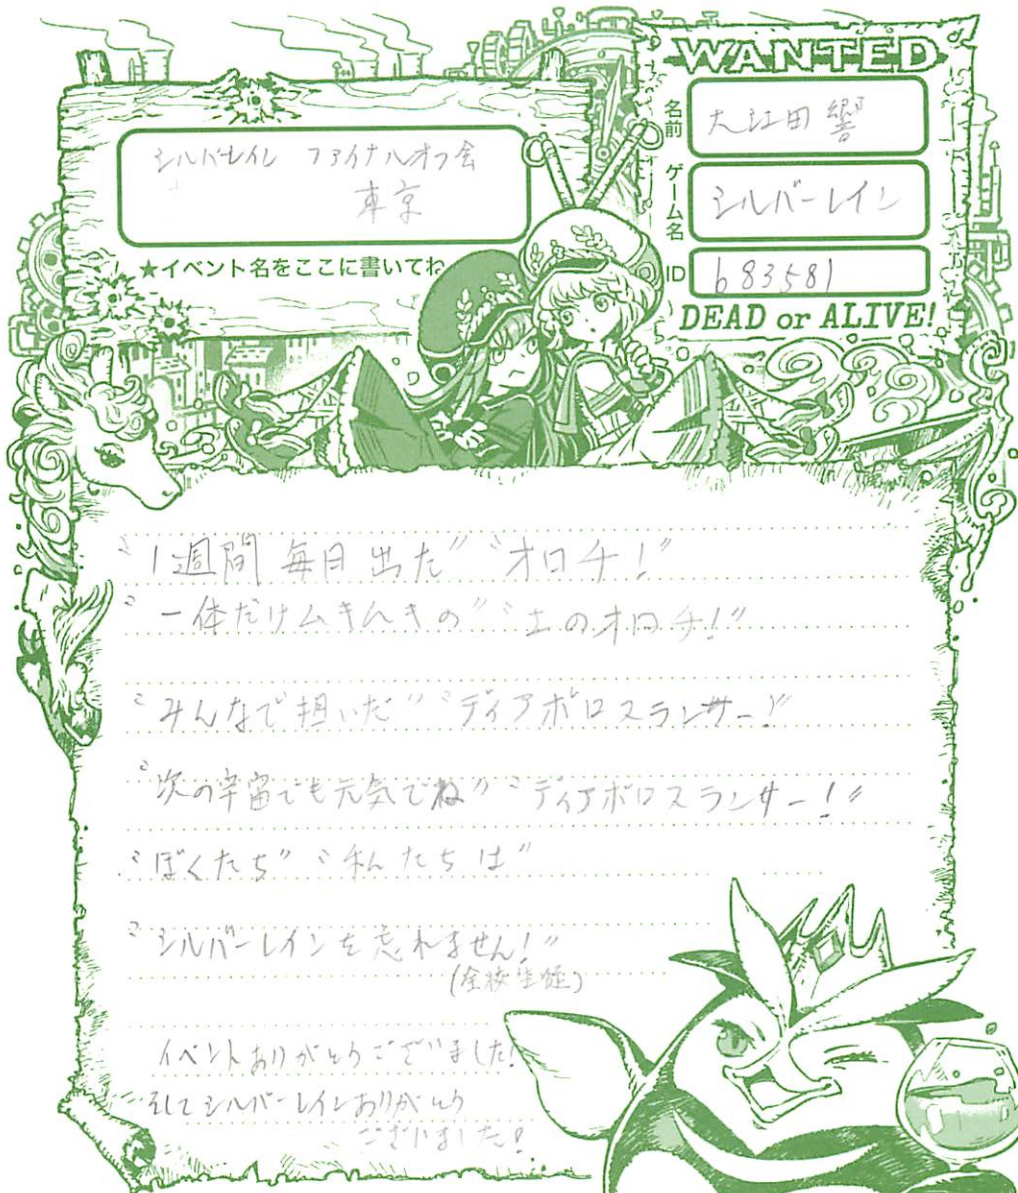 シルバーレイン ファイナルオフ会
東京
★イベント名をここに書いてね
WANTED
名前
大江田 響
ゲーム名
シルバーレイン
ID
b83581
DEAD or ALIVE!
〝1週間 毎日 出た〟〝オロチ!〟
〝一体だけムキムキの〟〝土のオロチ!〟
〝みんなで担いだ〟〝ディアボロスランサー!〟
〝次の宇宙でも元気でね〟〝ディアボロスランサー!〟
〝ぼくたち〟〝私たちは〟
〝シルバーレインを忘れません!〟
(全校生徒)
イベントありがとうございました!
そしてシルバーレインありがとう
ございました!